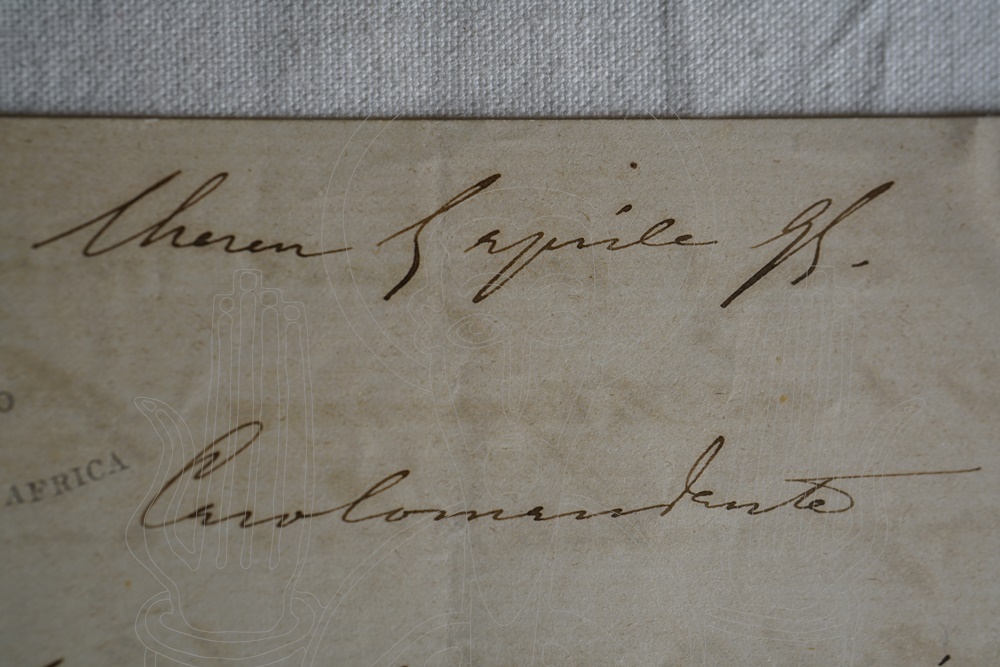 Cheren 5 aprile 95.
O
AFRICA
Caro Comandante